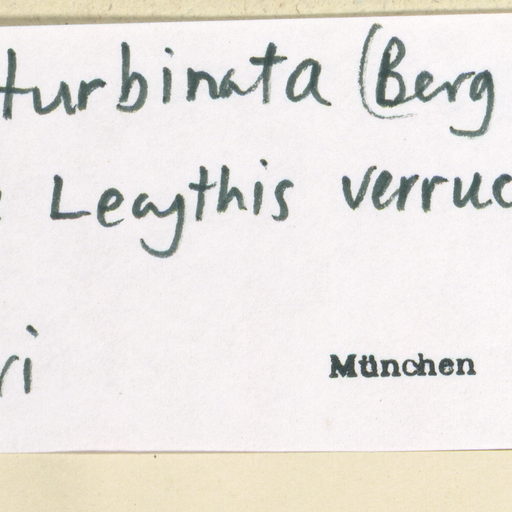 turbinata (Berg
Lecythis verruc
ri
München